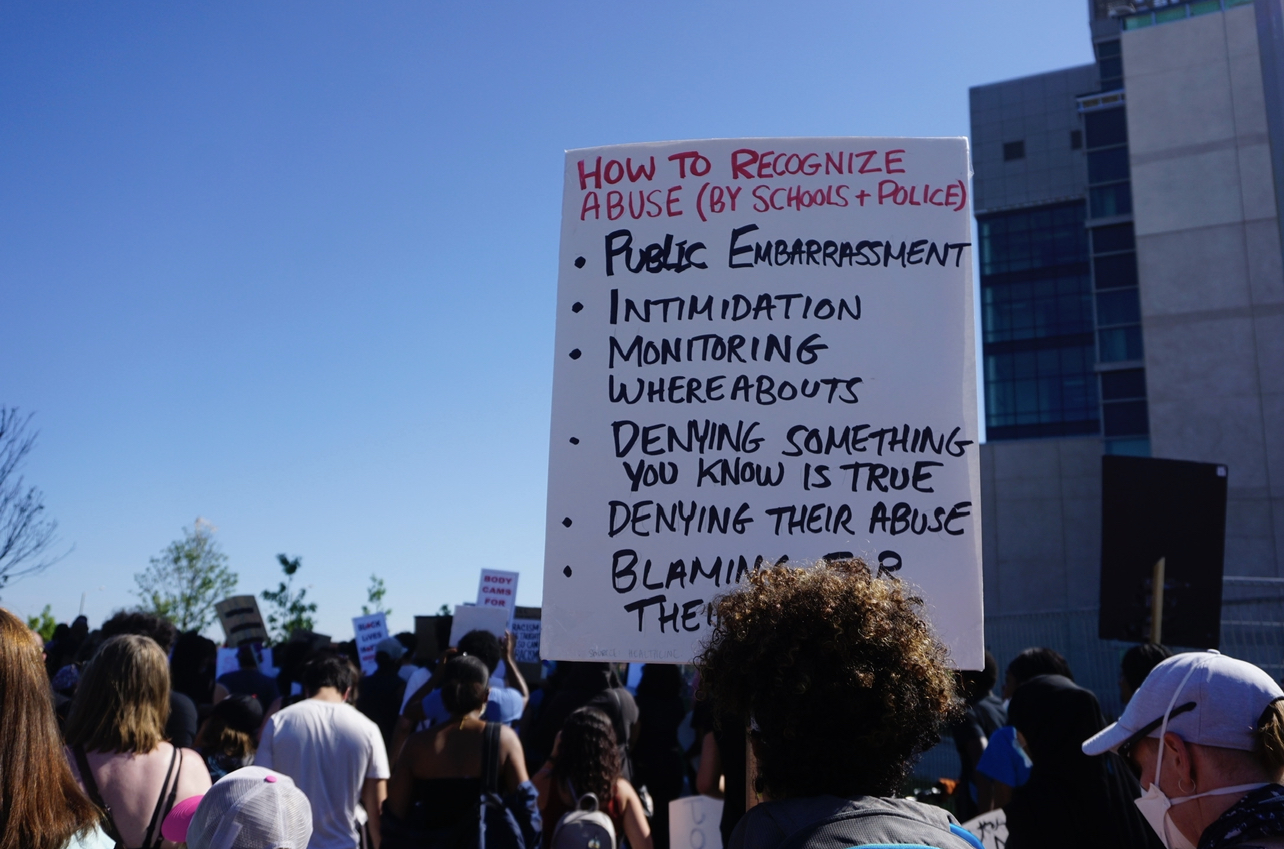 HOW TO RECOGNIZE
ABUSE (BY SCHOOLS + POLICE)
• PUBLIC EMBARRASSMENT
• INTIMIDATION
• MONITORING
WHEREABOUTS
• DENYING SOMETHING
YOU KNOW IS TRUE
• DENYING THEIR ABUSE
• BLAMING
BODY
CAMS
FOR
BLACK
LIVES
RACISM